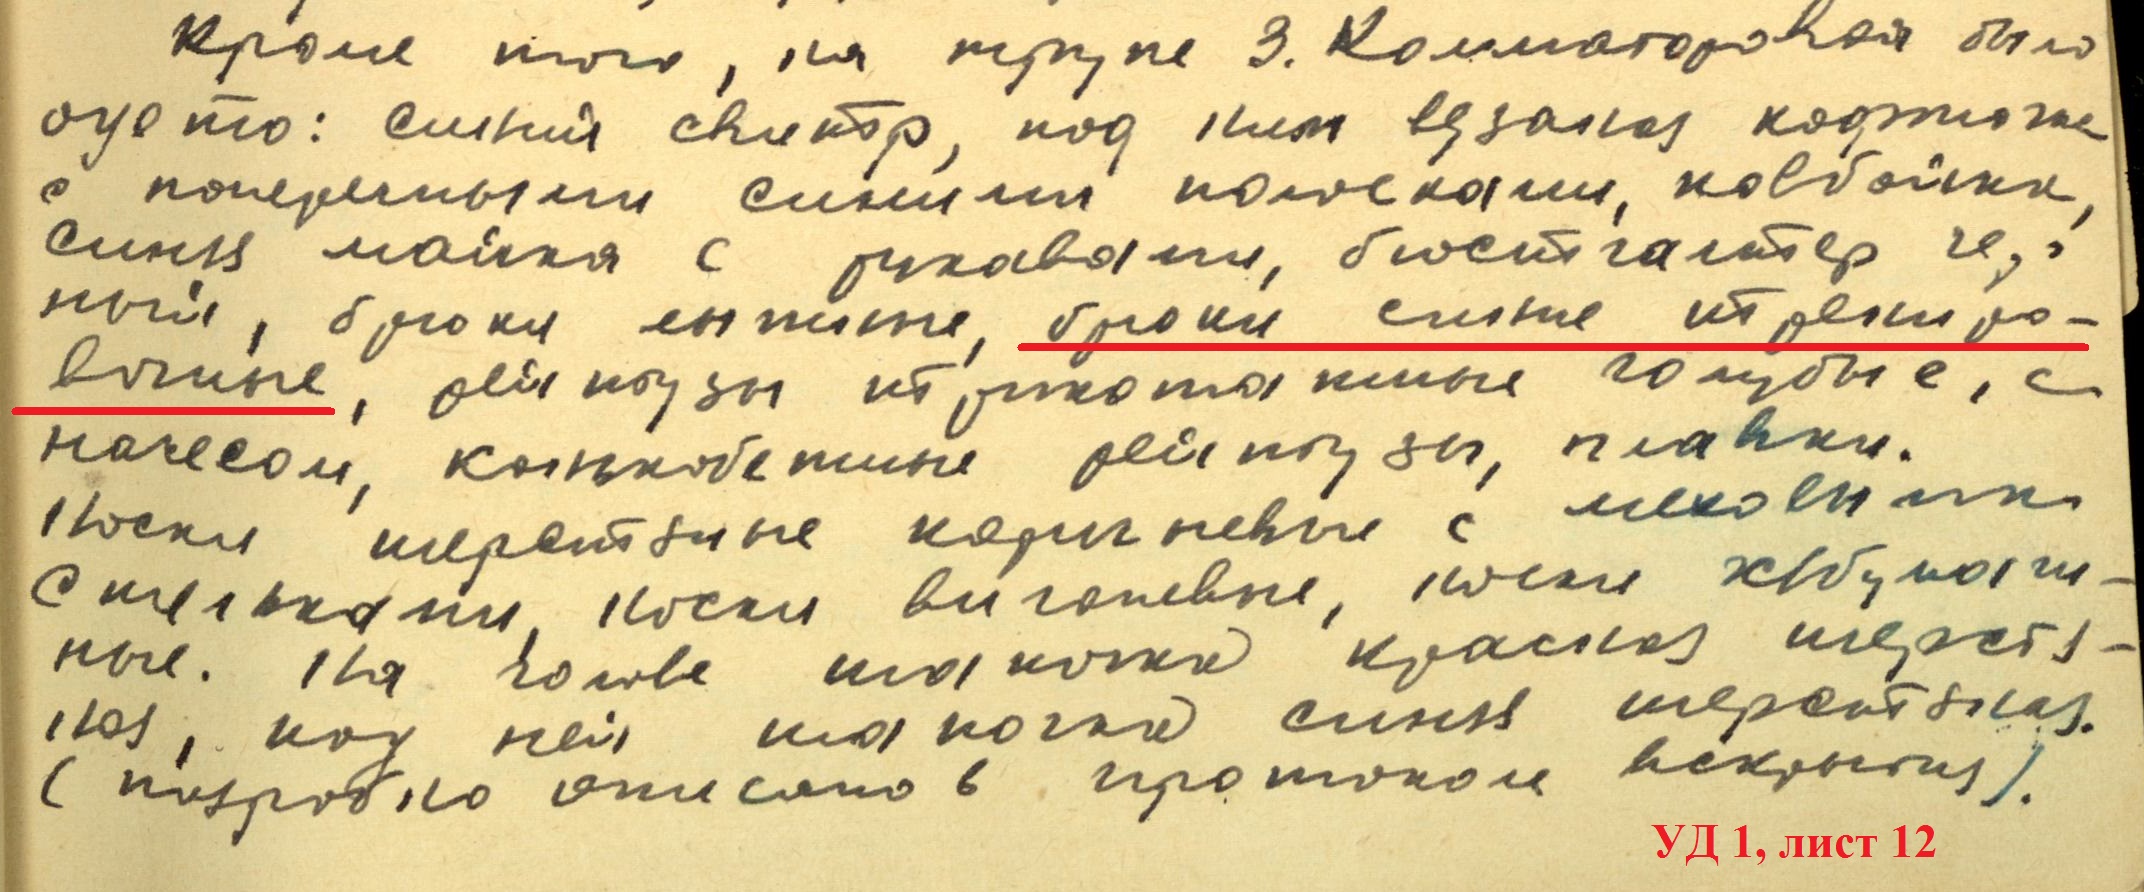 Кроме того, на трупе З. Колмогоровой было
одето: синий свитр, под ним вязаная кофточка
с поперечными синими полосками, ковбойка,
синяя майка с рукавами, бюстгалтер чер-
ный, брюки лыжные, брюки синие трениро-
вочные, рейтузы трикотажные голубые, с
начесом, конькобежные рейтузы, плавки.
Носки шерстяные коричневые с меховыми
стельками, носки вигоневые, носки х/бумаж-
ные. На голове шапочка красная шерстя-
ная, под ней шапочка синяя шерстяная.
(подробно описано в протоколе вскрытия).
УД 1, лист 12